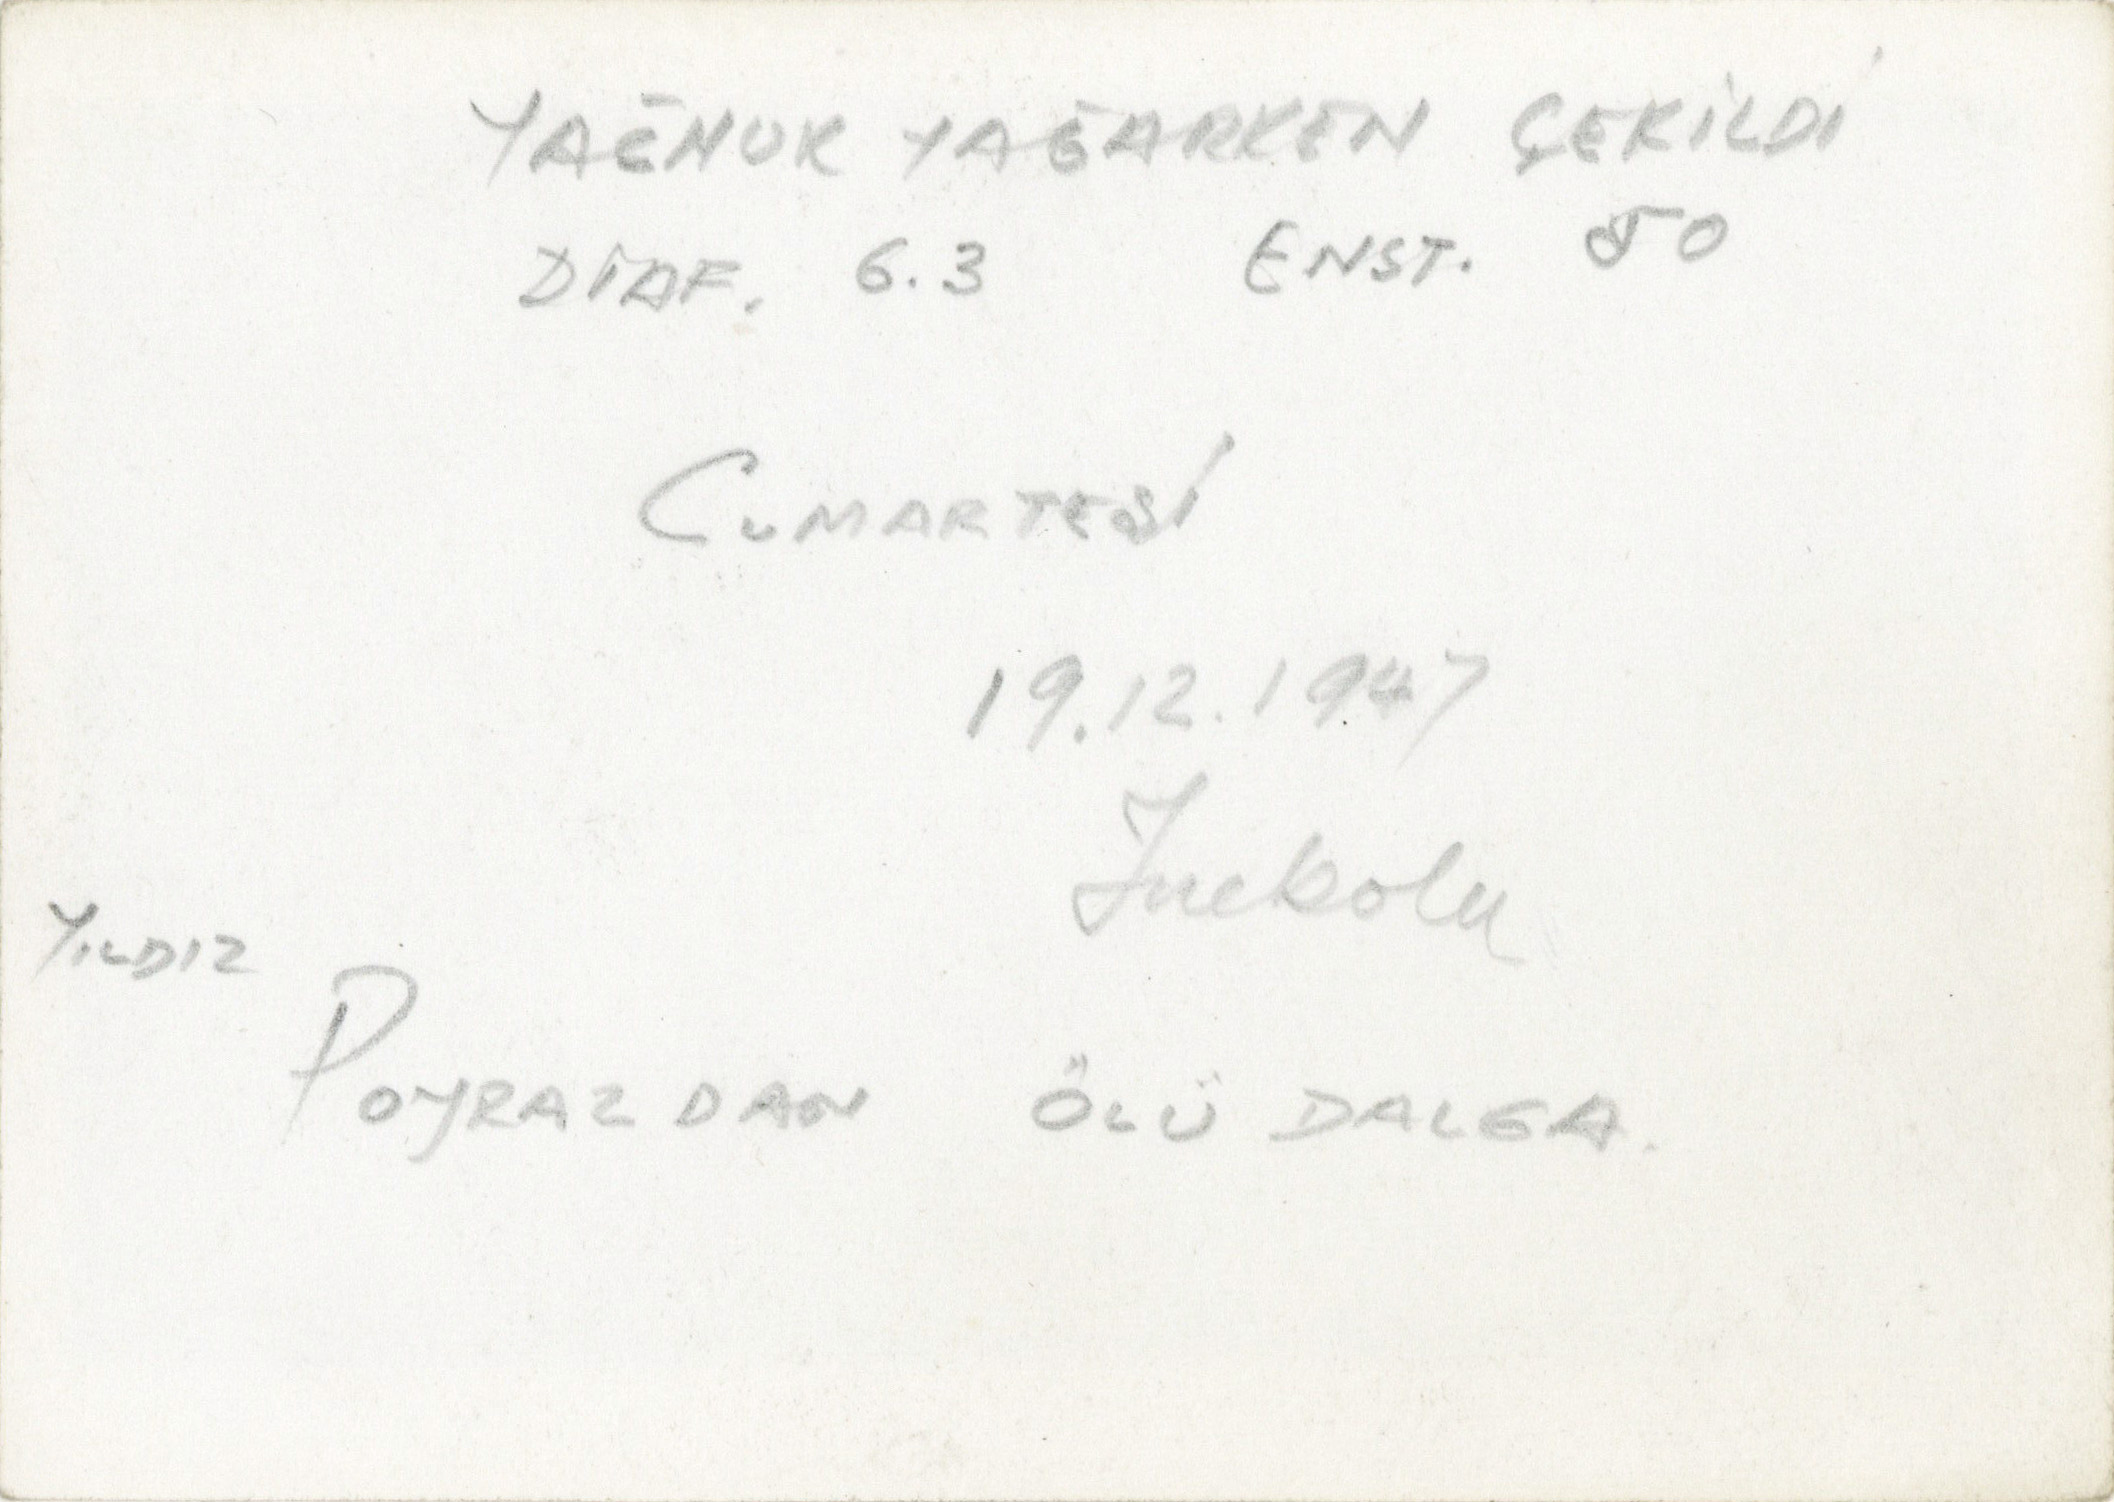 YAĞMUR YAĞARKEN ÇEKİLDİ
DİAF. 6.3 ENST. 50
CUMARTESİ
19.12.1947
İnebolu
YILDIZ
POYRAZDAN ÖLÜ DALGA.